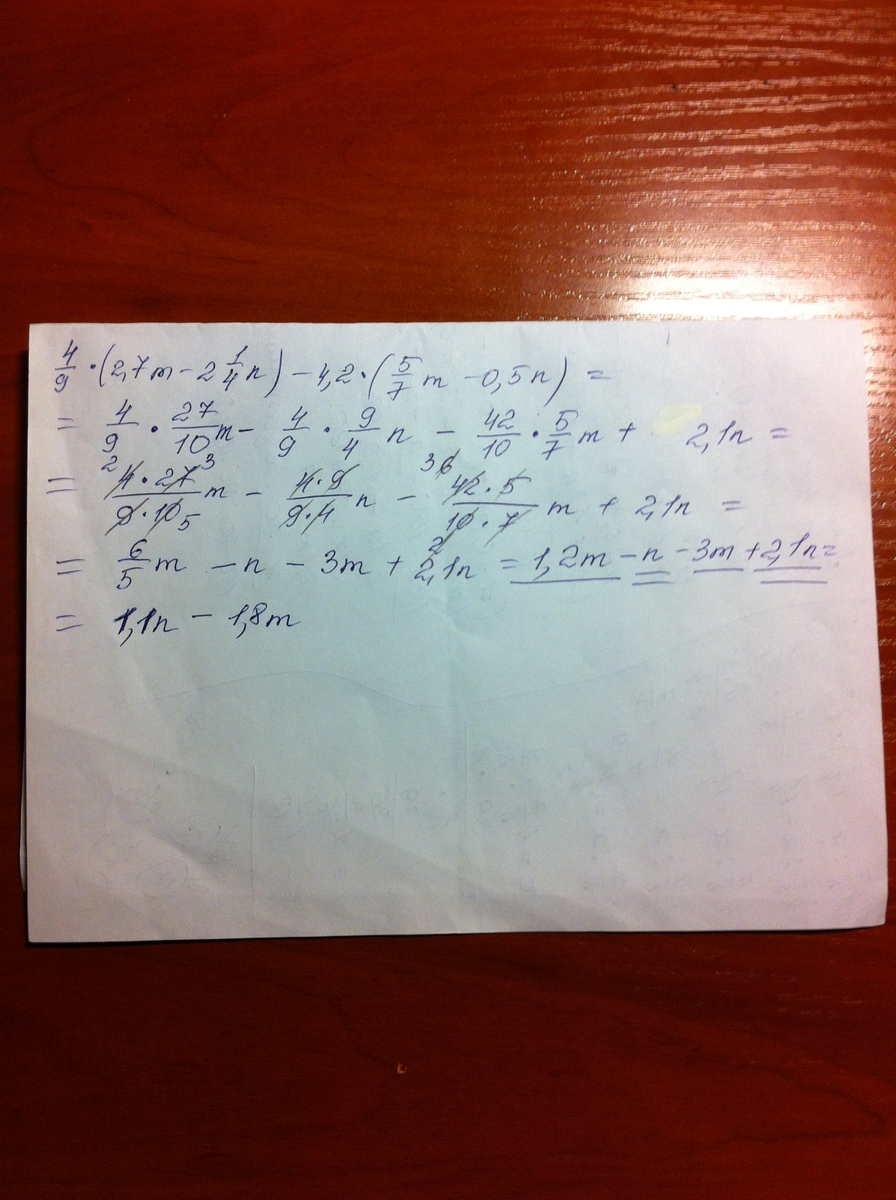 4/9 · (2,7m - 2 1/4 n) - 4,2 · (5/7 m - 0,5n) =
= 4/9 · 27/10 m - 4/9 · 9/4 n - 42/10 · 5/7 m + 2,1n =
= 4 · 27/9 · 10 m - 4 · 9/9 · 4 n - 42 · 5/10 · 7 m + 2,1n =
= 6/5 m - n - 3m + 2,1n = 1,2m - n - 3m + 2,1n =
= 1,1n - 1,8m